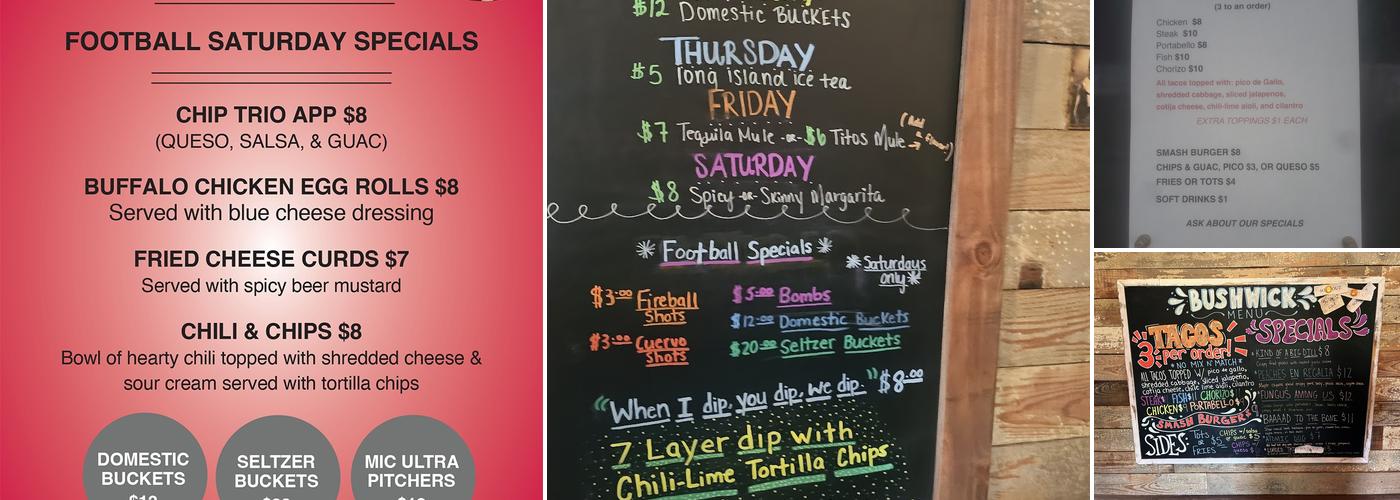 FOOTBALL SATURDAY SPECIALS
CHIP TRIO APP $8
(QUESO, SALSA, & GUAC)
BUFFALO CHICKEN EGG ROLLS $8
Served with blue cheese dressing
FRIED CHEESE CURDS $7
Served with spicy beer mustard
CHILI & CHIPS $8
Bowl of hearty chili topped with shredded cheese &
sour cream served with tortilla chips
DOMESTIC
BUCKETS
SELTZER
BUCKETS
MIC ULTRA
PITCHERS
$12 Domestic Buckets
THURSDAY
$5 long island ice tea
FRIDAY
$7 Tequila Mule -or- $6 Titos Mule
SATURDAY
$8 Spicy -or- Skinny Margarita
* Football Specials *
*Saturdays
only*
$3.00 Fireball
Shots
$3.00 Cuervo
Shots
$5.00 Bombs
$12.00 Domestic Buckets
$20.00 Seltzer Buckets
"When I dip, you dip, we dip." $8.00
7 Layer dip with
Chili-Lime Tortilla Chips
(3 to an order)
Chicken $8
Steak $10
Portabello $8
Fish $10
Chorizo $10
All tacos topped with: pico de Gallo,
shredded cabbage, sliced jalapenos,
cotija cheese, chili-lime aioli, and cilantro
EXTRA TOPPINGS $1 EACH
SMASH BURGER $8
CHIPS & GUAC, PICO $3, OR QUESO $5
FRIES OR TOTS $4
SOFT DRINKS $1
ASK ABOUT OUR SPECIALS
BUSHWICK
MENU
TACOS
3 per order!
* NO MIX N' MATCH *
ALL TACOS TOPPED W/ pico de gallo,
shredded cabbage, sliced jalapeño,
cotija cheese, chile lime aioli, cilantro
STEAK FISH CHORIZO
CHICKEN PORTABELLO
SMASH BURGER
SIDES:
Tots
or
FRIES
$5
SPECIALS
KIND OF A BIG DILL $8
ELOTES EN REGALIA $12
FUNGUS AMONG US $12
BAAAAD TO THE BONE $11